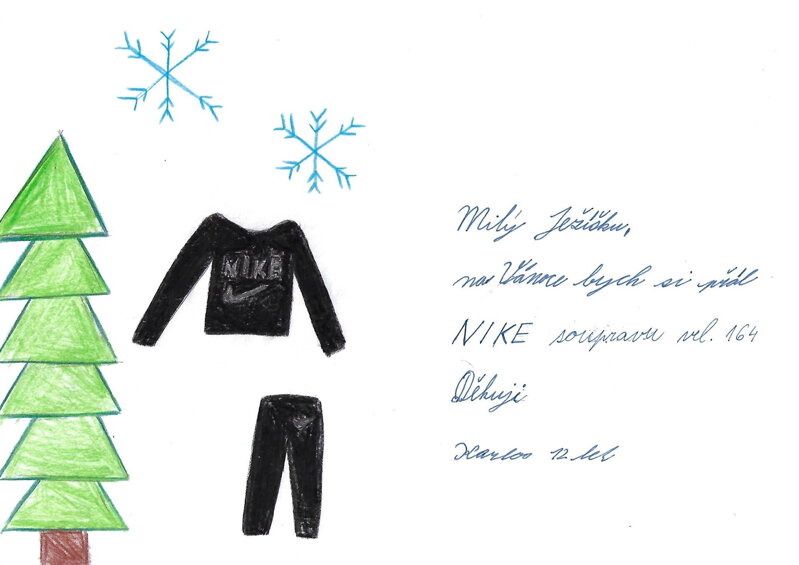 NIKE
Milý Ježíšku,
na Vánoce bych si přál
NIKE soupravu vel. 164
Děkuji
Karlos 12 let